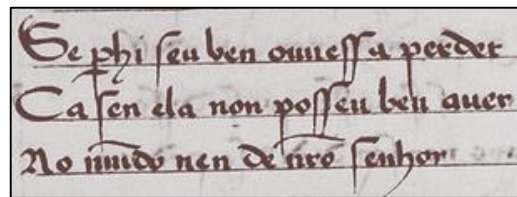 Se phi seu ben ouuess a perder
Ca sen ela non poss eu ben auer
No mūdo nen de nrō senhor